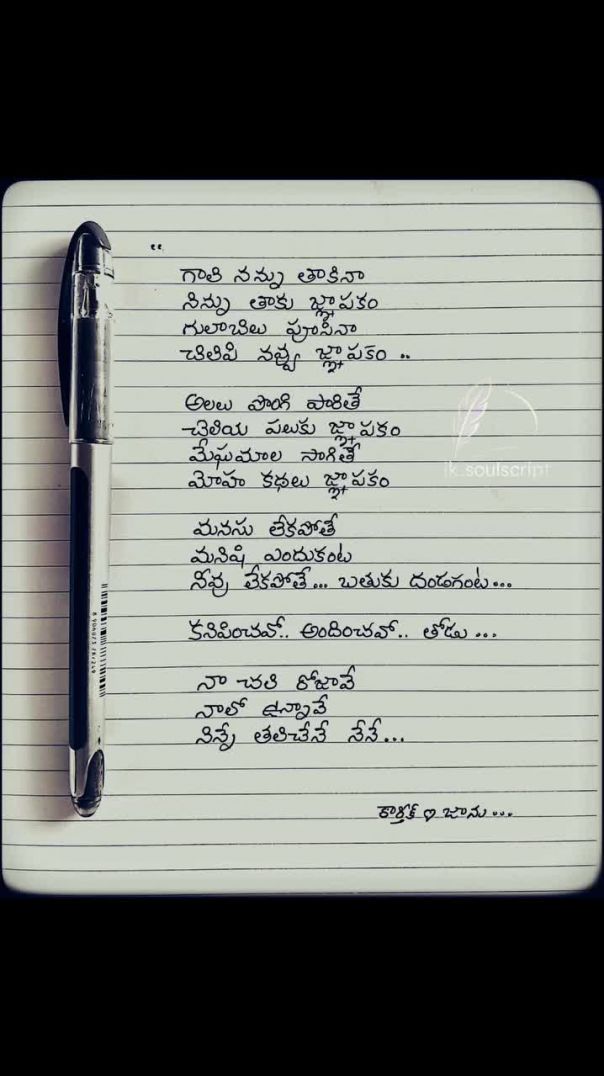 “
గాలి నన్ను తాకినా
నిన్ను తాకు జ్ఞాపకం
గులాబిలు పూసినా
చిలిపి నవ్వు జ్ఞాపకం ..
అలలు పొంగి పారితే
చెలియ పలుకు జ్ఞాపకం
మేఘమాల సాగితే
మోహ కథలు జ్ఞాపకం
jk_soulscript
మనసు లేకపోతే
మనిషి ఎందుకంట
నీవు లేకపోతే... బతుకు దండగంట...
కనిపించవో.. అందించవో.. తోడు...
నా చలి రోజావే
నాలో ఉన్నావే
నిన్నే తలిచేనే నేనే...
కార్తీక్ ♡ జాను...